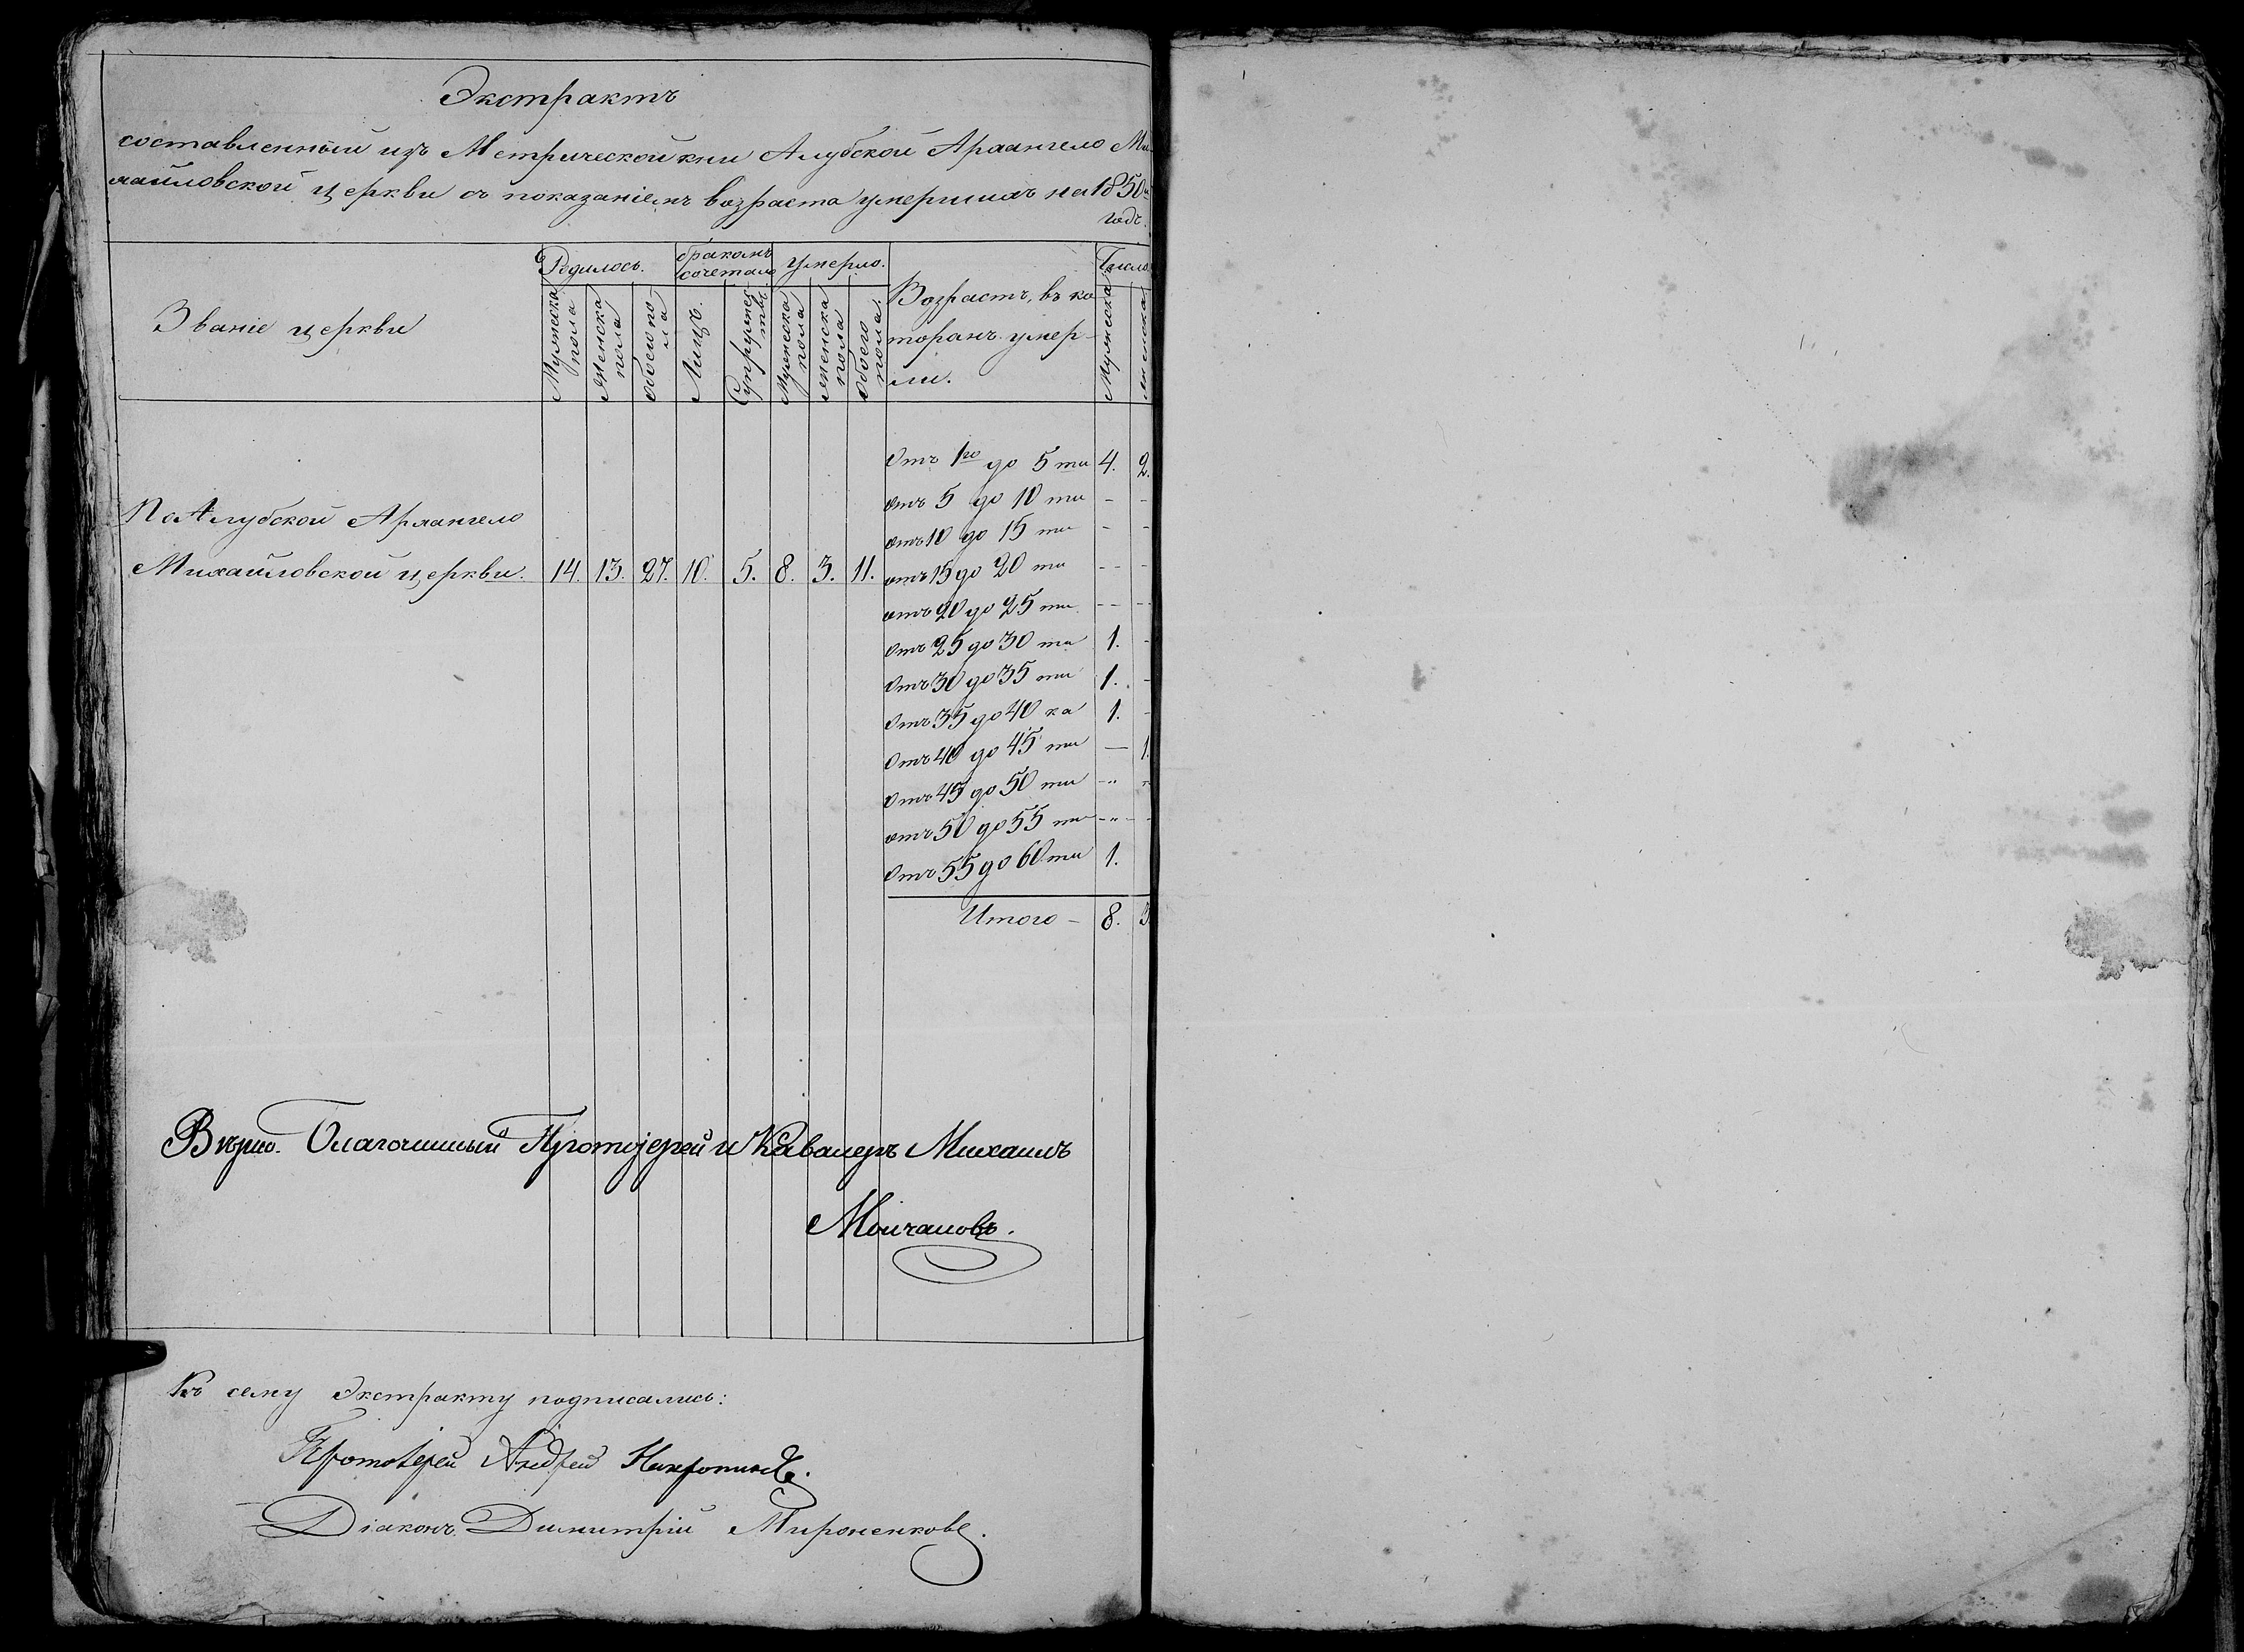 Экстрактъ
составленный изъ Метрической кни Алубской Архангело Ми-
хайловской церкви съ показаніемъ возраста умершихъ на 1850й
годъ.
Званіе церкви
Родилось.
бракомъ сочетало
Умерло.
Возрастъ, въ ко
торомъ умер-
ли.
Число
Мужеска пола
Женска пола
Обоего пола
Лицъ.
Супружествъ.
Мужеска пола
Женска пола
Обоего пола.
Мужеска
Женска
Отъ 1го до 5 ти 4. 2.
отъ 5 до 10 ти - -
По Алубской Архангело
отъ 10 до 15 ти - -
Михайловской церкви. 14. 13. 27. 10. 5. 8. 3. 11. отъ 15 до 20 ти - - -
отъ 20 до 25 ти - - - -
Отъ 25 до 30 ти 1. -
Отъ 30 до 35 ти 1. -
Отъ 35 до 40 ка 1. -
Отъ 40 до 45 ти — 1.
Отъ 45 до 50 ти -"
отъ 50 до 55 ти -"- -
Отъ 55 до 60 ти 1.
Итого - 8. 3
Вѣрно. Благочинный Протоіерей и Кавалеръ Михаилъ
Молчановъ.
Къ сему Экстракту подписались:
Протоіерей Андрей
Діаконъ Димитрій Мироненковъ.